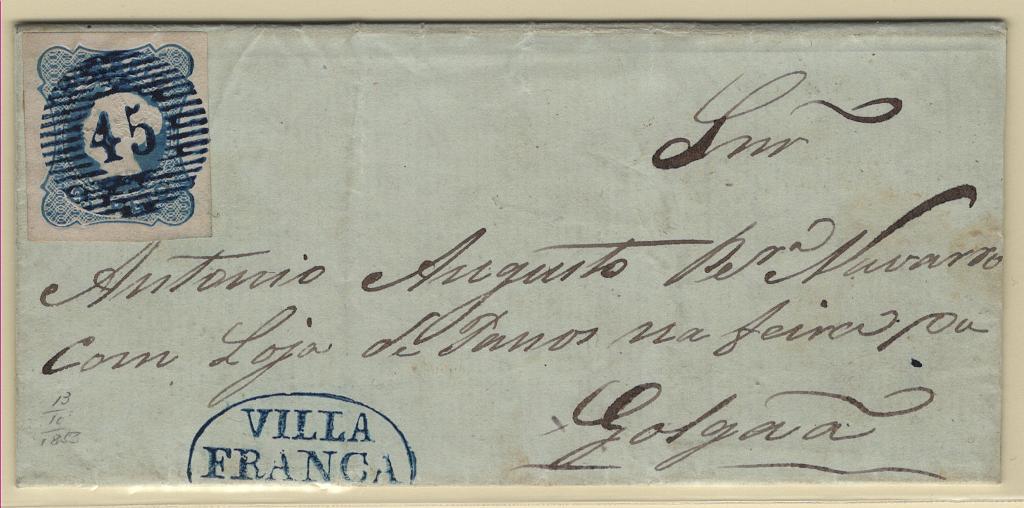 45
Snr
Antonio Augusto Per.ª Navarro
com Loja de Panos na feira da
Golgaã
13
10
1853
VILLA
FRANCA